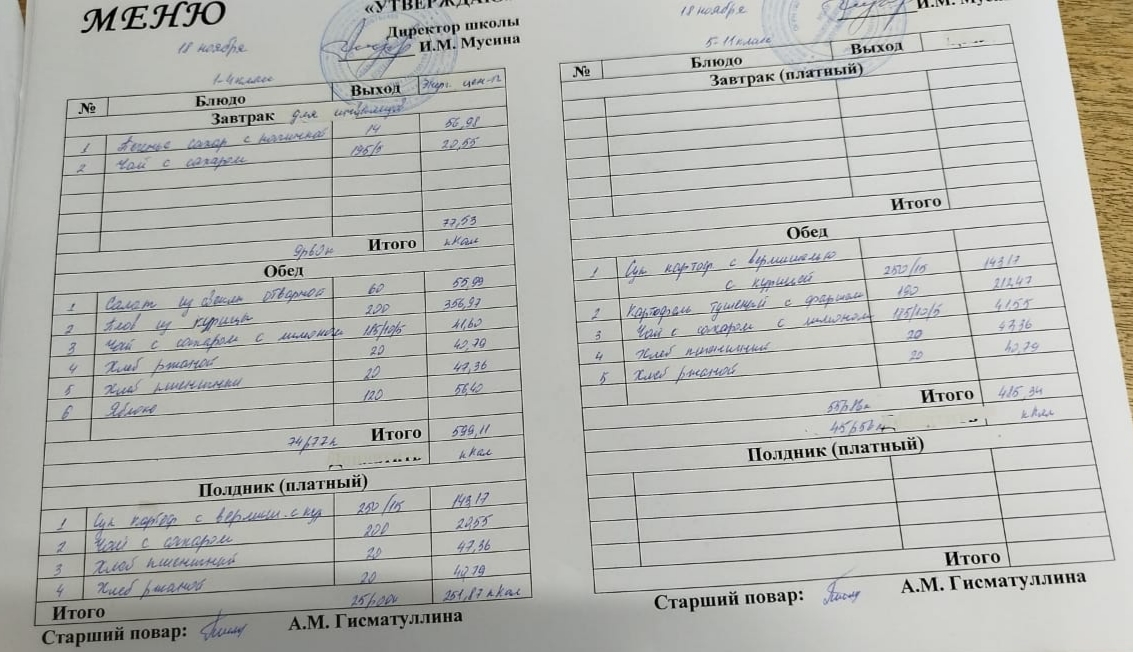 МЕНЮ
«УТВЕРЖДАЮ
Директор школы
И.М. Мусина
18 ноября
1-4 класс
№ Блюдо Выход Энерг. цен-ть
Завтрак для
1 Печенье сахар с 14 56,98
2 Чай с сахаром 195/5 20,55
77,53
9р60к Итого кКал
Обед
1 Салат из свеклы отварной 60 55,99
2 Плов из курицы 200 356,97
3 Чай с сахаром с лимоном 185/10/5 41,60
4 Хлеб ржаной 20 40,79
5 Хлеб пшеничный 20 47,36
6 Яблоко 120 56,40
74р77к Итого 599,11
кКал
Полдник (платный)
1 Суп картоф с вермиш. с кур 250/15 143,17
2 Чай с сахаром 200 20,55
3 Хлеб пшеничный 20 47,36
4 Хлеб ржаной 20 40,79
Итого 25р00к 251,87 кКал
Старший повар: А.М. Гисматуллина
18 ноября
И.М. Мусин
5-11 класс
№ Блюдо Выход
Завтрак (платный)
Итого
Обед
1 Суп картоф с вермишелью
с курицей 250/15 143,17
2 Картофель тушеный с фаршем 190 212,47
3 Чай с сахаром с лимоном 185/10/5 41,55
4 Хлеб пшеничный 20 47,36
5 Хлеб ржаной 20 40,79
Итого 485,34
кКал
Полдник (платный)
Итого
Старший повар: А.М. Гисматуллина